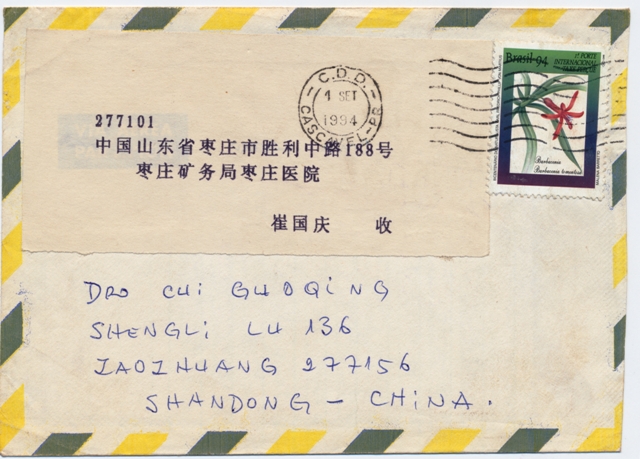 C.D.D.
1 SET
1994
CASCAVEL-PR
Brasil 94
1º PORTE
INTERNACIONAL
Barbacenia
Barbacenia tomentosa
277101
中国山东省枣庄市胜利中路188号
枣庄矿务局枣庄医院
崔国庆 收
DRO CUI GUOQING
SHENGLI LU 136
ZAOZHUANG 277156
SHANDONG - CHINA.